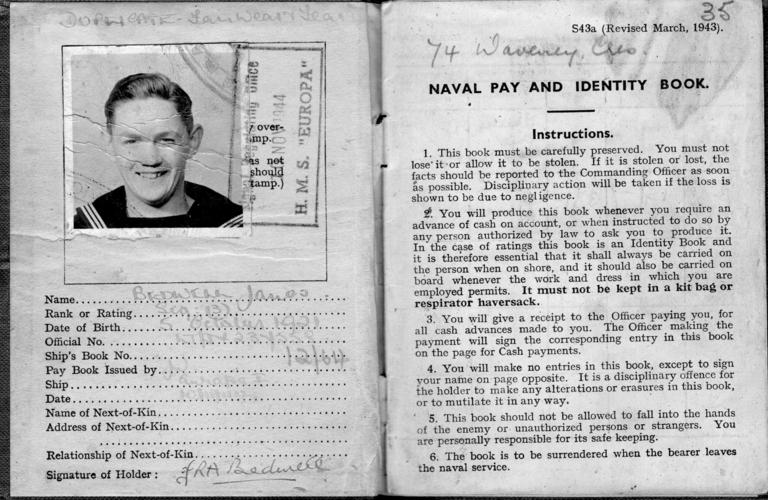 DUPLICATE - Fair Wear & Tear
H.M.S. "EUROPA"
NOV 1944
y over-
mp.
as not
should
tamp.)
Name
Bedwell James
Rank or Rating
Date of Birth
Official No.
Ship's Book No.
Pay Book Issued by
Ship
Date
Name of Next-of-Kin
Address of Next-of-Kin
Relationship of Next-of-Kin
Signature of Holder: JRA Bedwell
35
S43a (Revised March, 1943).
74 Waveney Cres
NAVAL PAY AND IDENTITY BOOK.
Instructions.
1. This book must be carefully preserved. You must not
lose it or allow it to be stolen. If it is stolen or lost, the
facts should be reported to the Commanding Officer as soon
as possible. Disciplinary action will be taken if the loss is
shown to be due to negligence.
2. You will produce this book whenever you require an
advance of cash on account, or when instructed to do so by
any person authorized by law to ask you to produce it.
In the case of ratings this book is an Identity Book and
it is therefore essential that it shall always be carried on
the person when on shore, and it should also be carried on
board whenever the work and dress in which you are
employed permits. It must not be kept in a kit bag or
respirator haversack.
3. You will give a receipt to the Officer paying you, for
all cash advances made to you. The Officer making the
payment will sign the corresponding entry in this book
on the page for Cash payments.
4. You will make no entries in this book, except to sign
your name on page opposite. It is a disciplinary offence for
the holder to make any alterations or erasures in this book,
or to mutilate it in any way.
5. This book should not be allowed to fall into the hands
of the enemy or unauthorized persons or strangers. You
are personally responsible for its safe keeping.
6. The book is to be surrendered when the bearer leaves
the naval service.